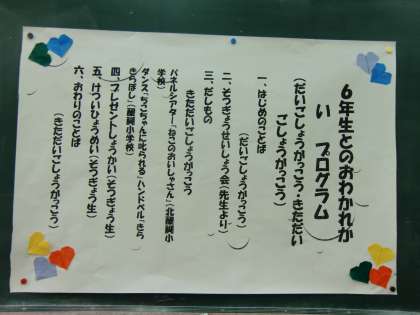 6年生とのおわかれか
い　プログラム
（だいごしょうがっこう・きただい
ごしょうがっこう）
一、はじめのことば
（だいごしょうがっこう）
二、そつぎょうせいしょう会（先生より）
三、だしもの
きただいごしょうがっこう
パネルシアター「ねこのおいしゃさん」（北醍醐小
学校）
ダンス「ちこちゃんに叱られる」ハンドベル「きら
きらぼし」（醍醐小学校）
四、プレゼントしょうかい（そつぎょう生）
五、けついひょうめい（そつぎょう生）
六、おわりのことば
（きただいごしょうがっこう）